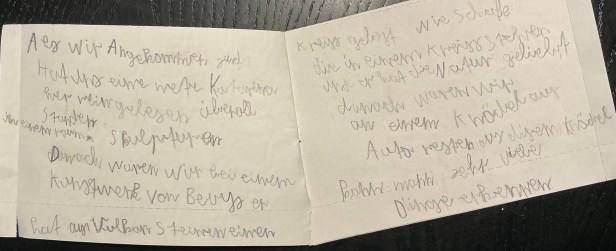 Aes wir Angekommen sind
Hat uns eine nete
her rein gelesen überall
standen
in einem raum Skulpturen
Danach waren wir bei einem
Kunstwerk von Beuys er
hat aus Vulkan steinen einen
kreiss gelegt wie Schafe
die in einem Kreiss stehen
und er hat die Natur geliebt
danach waren wir
an einem Knödel aus
Auto resten aus disem Knödel
kann mann sehr viele
Dinge erkennen